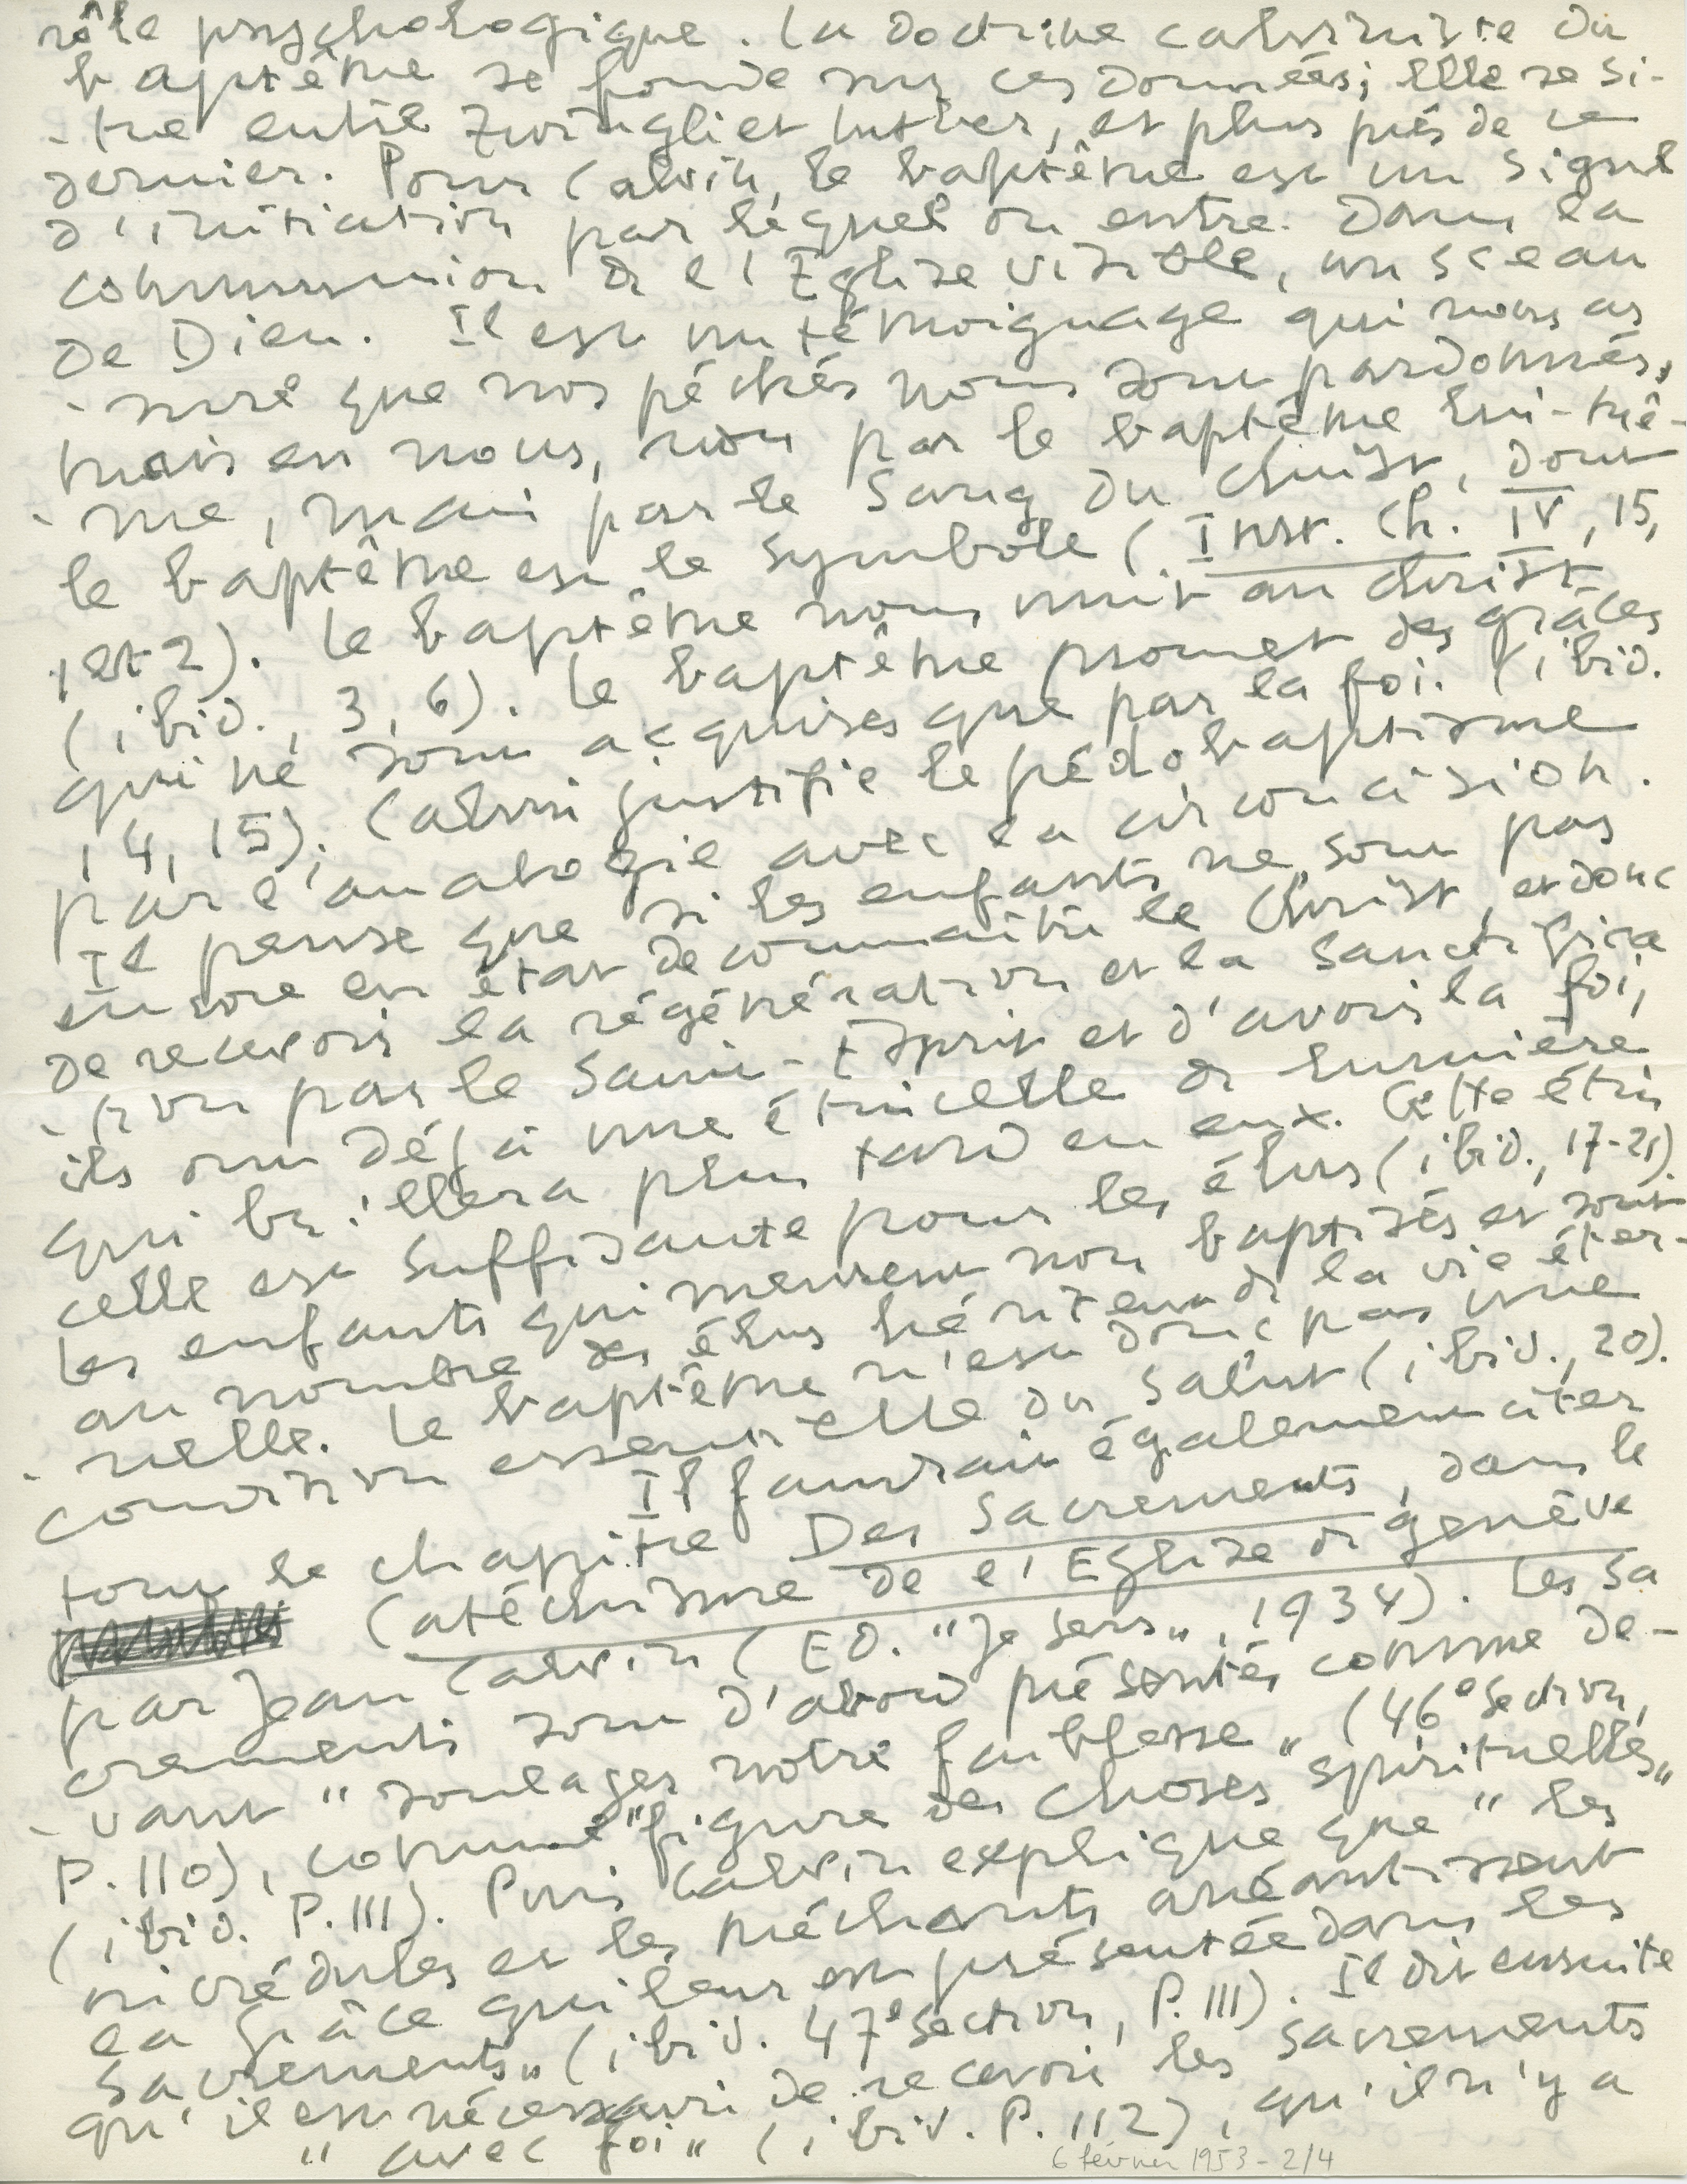 rôle psychologique. La doctrine calviniste du
baptême se fonde sur ces données; elle se si-
-tue entre Zwingli et Luther, et plus près de ce
dernier. Pour Calvin, le baptême est un signe
d'initiation par lequel on entre dans la
communion de l'Eglise visible, un sceau
de Dieu. Il est un témoignage qui nous as
-sure que nos péchés nous sont pardonnés,
mais en nous, non par le baptême lui-mê-
-me, mais par le sang du Christ, dont
le baptême est le symbole (Inst. Ch. IV, 15,
1 et 2). Le baptême nous unit au Christ
(ibid., 3, 6). Le baptême promet des grâces
qui ne sont acquises que par la foi. (ibid.
14, 15). Calvin justifie le pédobaptisme
par l'analogie avec la circoncision.
Il pense que si les enfants ne sont pas
encore en état de connaître le Christ, et donc
de recevoir la régénération et la sanctifica
-tion par le Saint-Esprit et d'avoir la foi,
ils ont déjà une étincelle de lumière
qui brillera plus tard en eux. Cette étin
celle est suffisante pour les élus (ibid., 17-21).
Les enfants qui meurent non baptisés et sont
au nombre des élus héritent de la vie éter-
-nelle. Le baptême n'est donc pas une
condition essentielle du salut (ibid., 20).
Il faudrait également citer
tout le chapitre Des Sacrements, dans le
Catéchisme de l'Eglise de Genève
par Jean Calvin (Ed. "Je sers", 1934). Les sa
crements sont d'abord présentés comme de-
-vant "soulager notre faiblesse" (46e section,
P. 110), comme "figure des choses spirituelles"
(ibid. P. 111). Puis Calvin explique que "les
incrédules et les méchants anéantissent
la grâce qui leur est présentée dans les
sacrements" (ibid. 47e section, P. 111). Il dit ensuite
qu'il est nécessaire de recevoir les sacrements
"avec foi" (ibid. P. 112), qu'il n'y a
6 février 1953 - 2/4